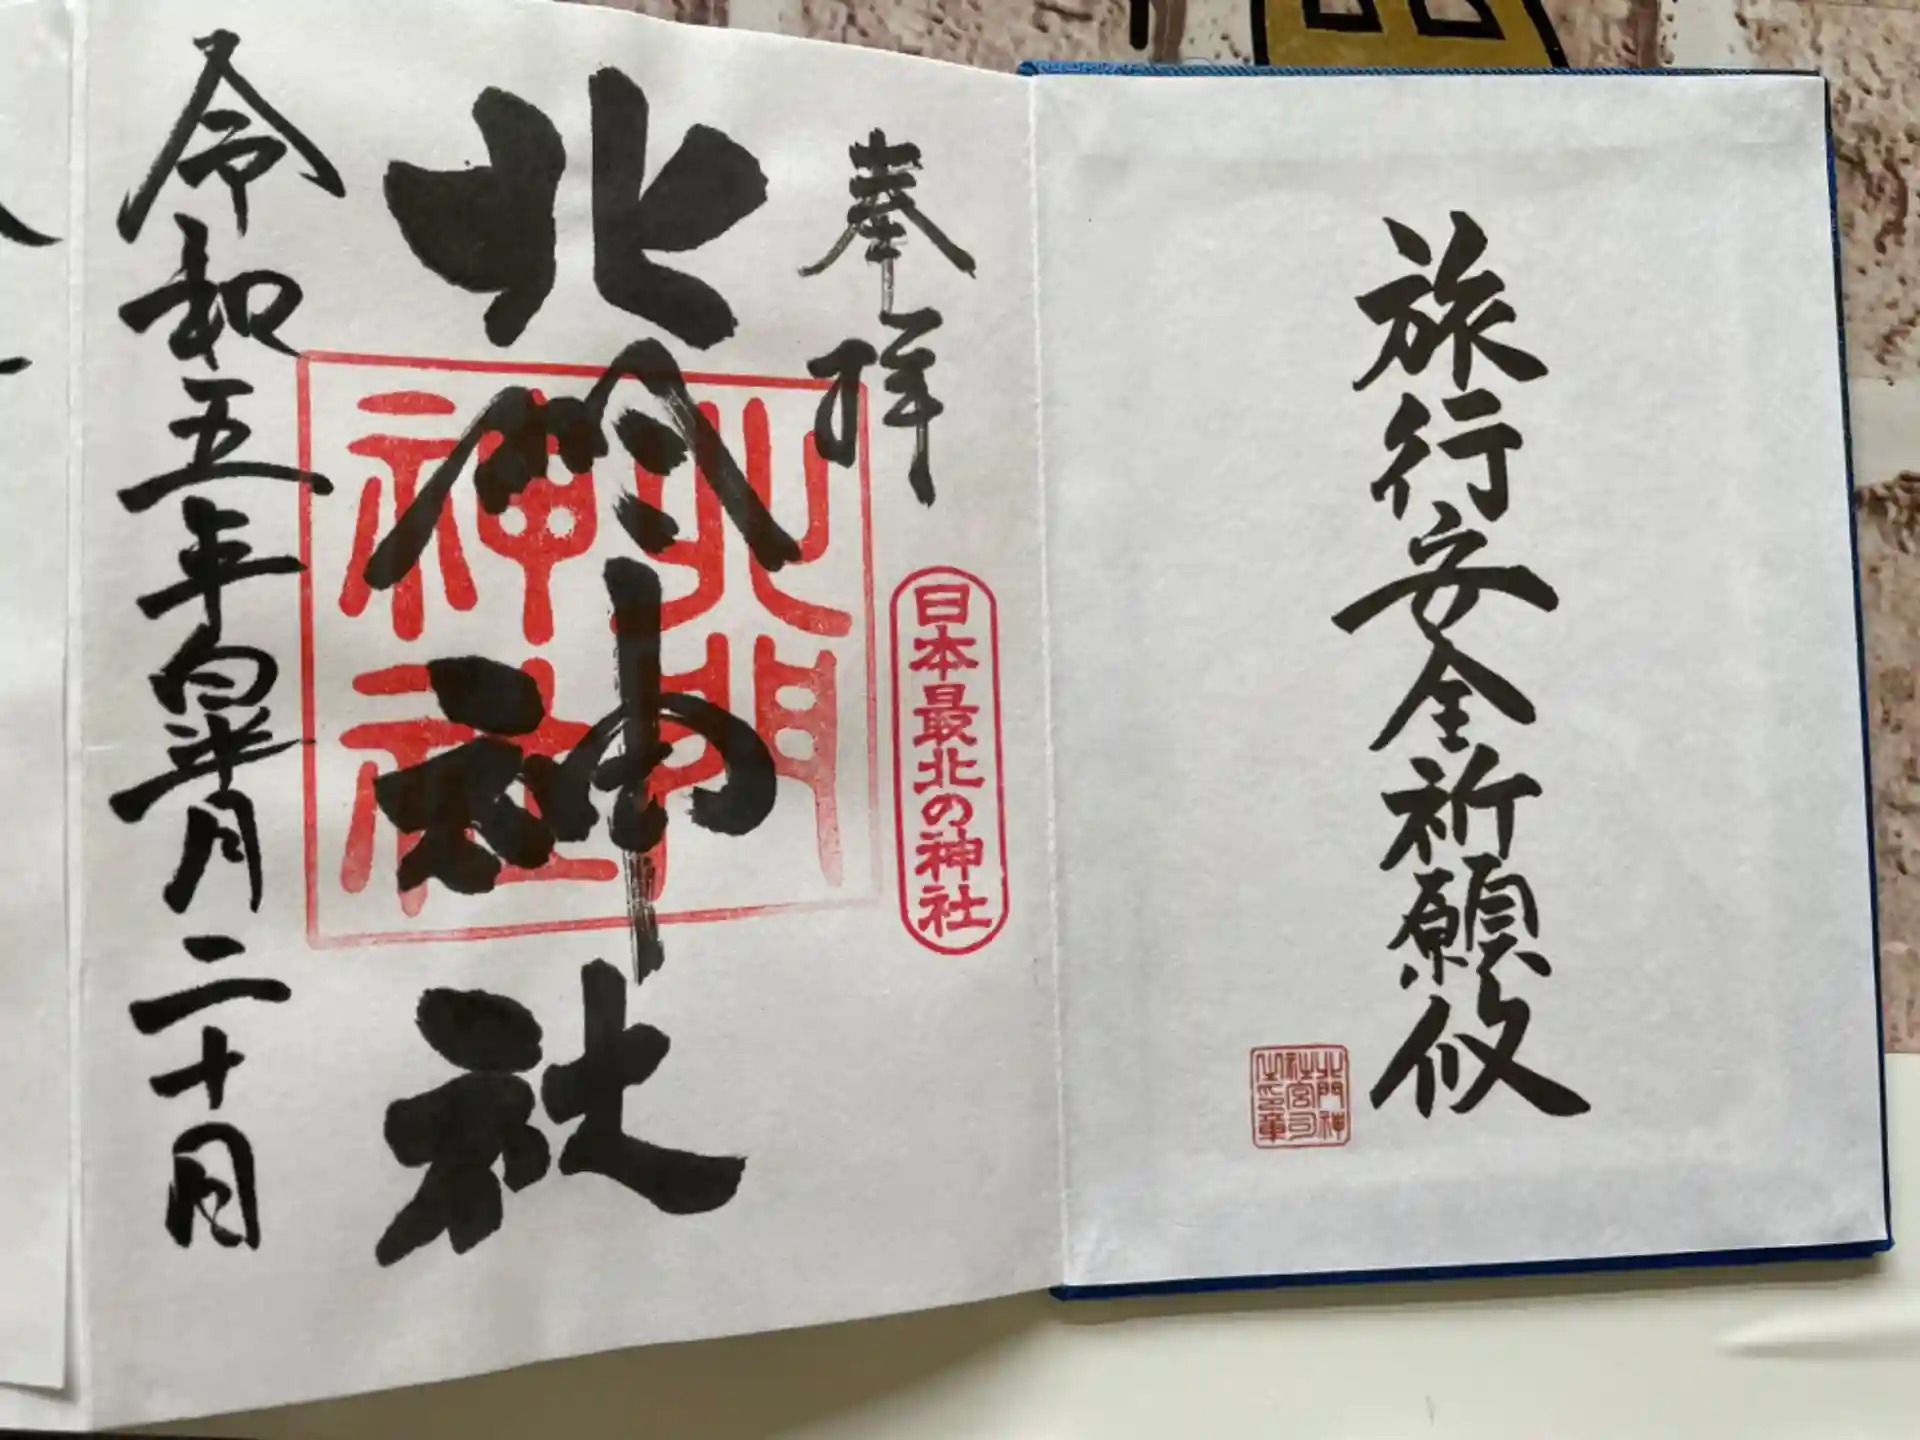 旅行安全祈願攸
北門神社宮司之印章
奉拝
日本最北の神社
北門神社
北門神社
令和五年皐月二十日